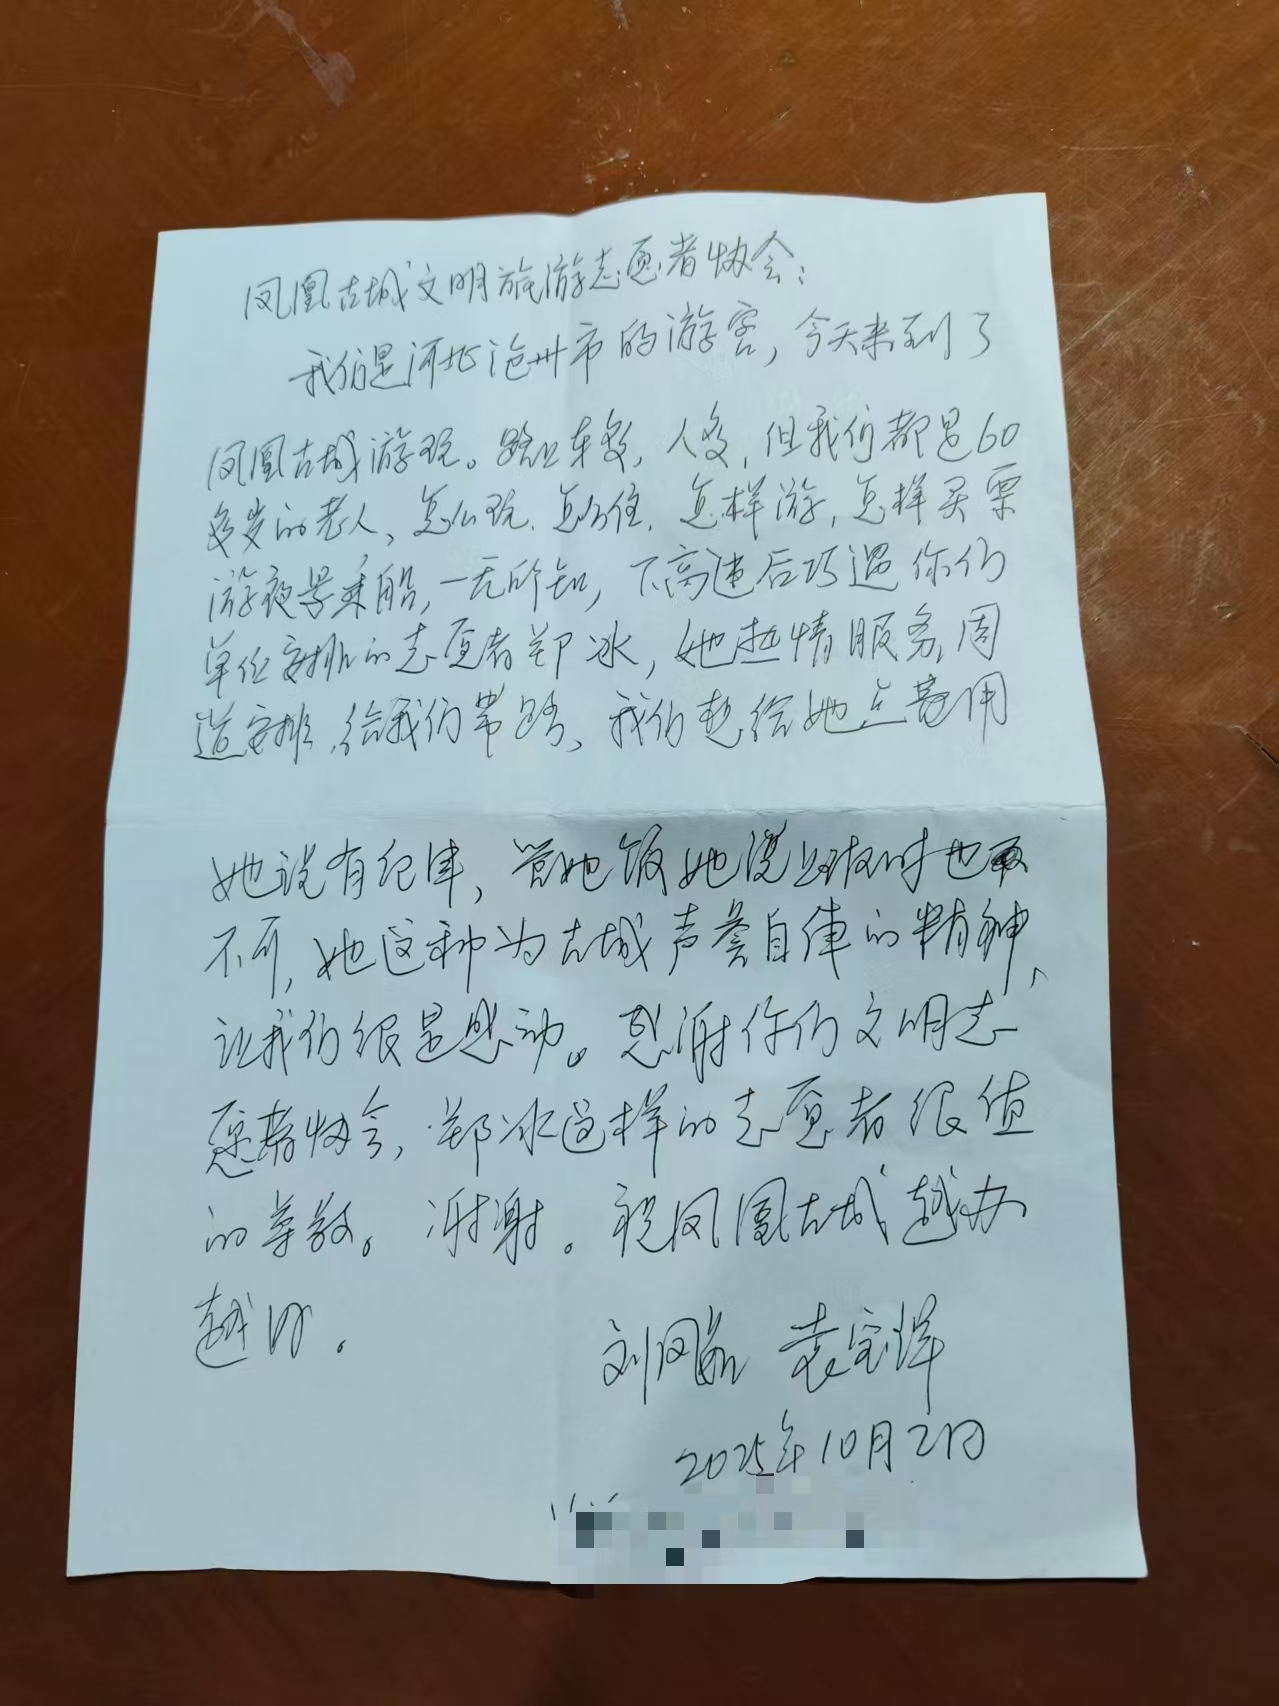 凤凰古城文明旅游志愿者协会：
我们是河北沧州市的游客，今天来到了
凤凰古城游玩。路上车多，人多，但我们都是60
多岁的老人，怎么玩、怎么住、怎样游，怎样买票
游夜景乘船，一无所知，下高速后巧遇你们
单位安排的志愿者郑冰，她热情服务，周
道安排，给我们带路、我们想给她点费用
她说有纪律，管她饭她说
不可，她这种为古城声誉自律的精神，
让我们很是感动。感谢你们文明志
愿者协会，郑冰这样的志愿者很值
的尊敬。谢谢。祝凤凰古城越办
越好。
袁宝
2025年10月2日